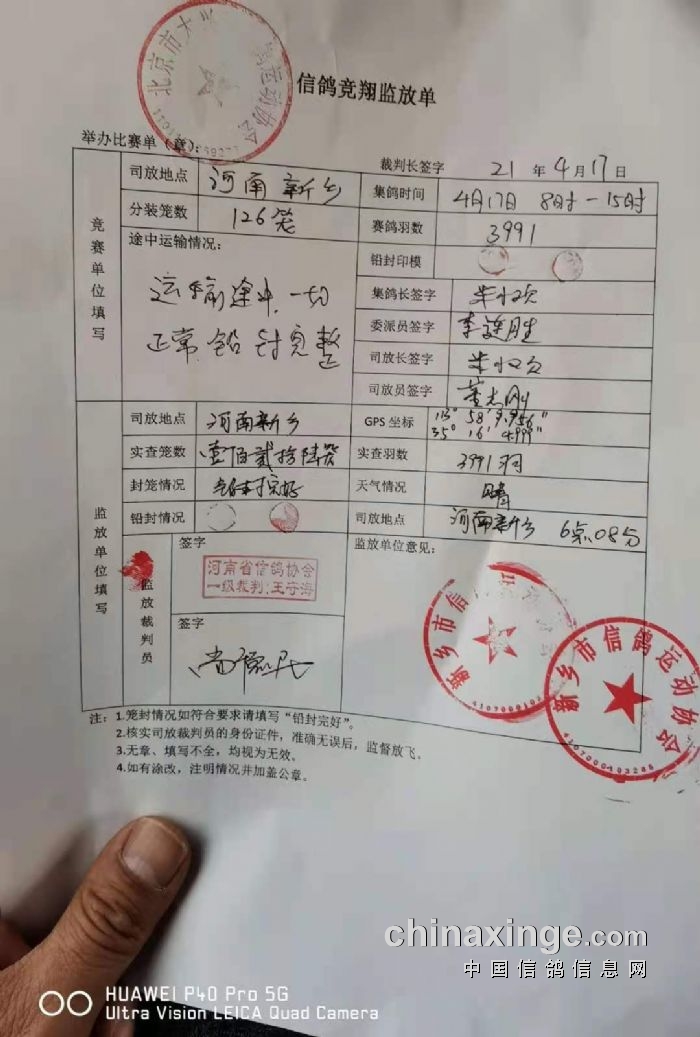 信鸽竞翔监放单
北京市大
鸽运动协会
举办比赛单(章):
裁判长签字 21 年 4 月 17 日
竞赛单位填写
司放地点 河南新乡 集鸽时间 4月17日 8时—15时
分装笼数 126笼 赛鸽羽数 3991
途中运输情况: 铅封印模
运输途中,一切
正常 铅封完整
集鸽长签字
委派员签字 李连胜
司放长签字
司放员签字
监放单位填写
司放地点 河南新乡 GPS 坐标 113° 58' 9.956"
35° 16' 4.999"
实查笼数 壹佰贰拾陆笼 实查羽数 3991羽
封笼情况 铅封完好 天气情况 晴
铅封情况 司放地点 河南新乡 6点08分
监放裁判员
签字 监放单位意见:
河南省信鸽协会
一级裁判:王守海
签字
新乡市信鸽
新乡市信鸽运动协会
4107000103286
注: 1.笼封情况如符合要求请填写“铅封完好”。
2.核实司放裁判员的身份证件,准确无误后,监督放飞。
3.无章、填写不全,均视为无效。
4.如有涂改,注明情况并加盖公章。
chinaxinge.com
中国信鸽信息网
HUAWEI P40 Pro 5G
Ultra Vision LEICA Quad Camera